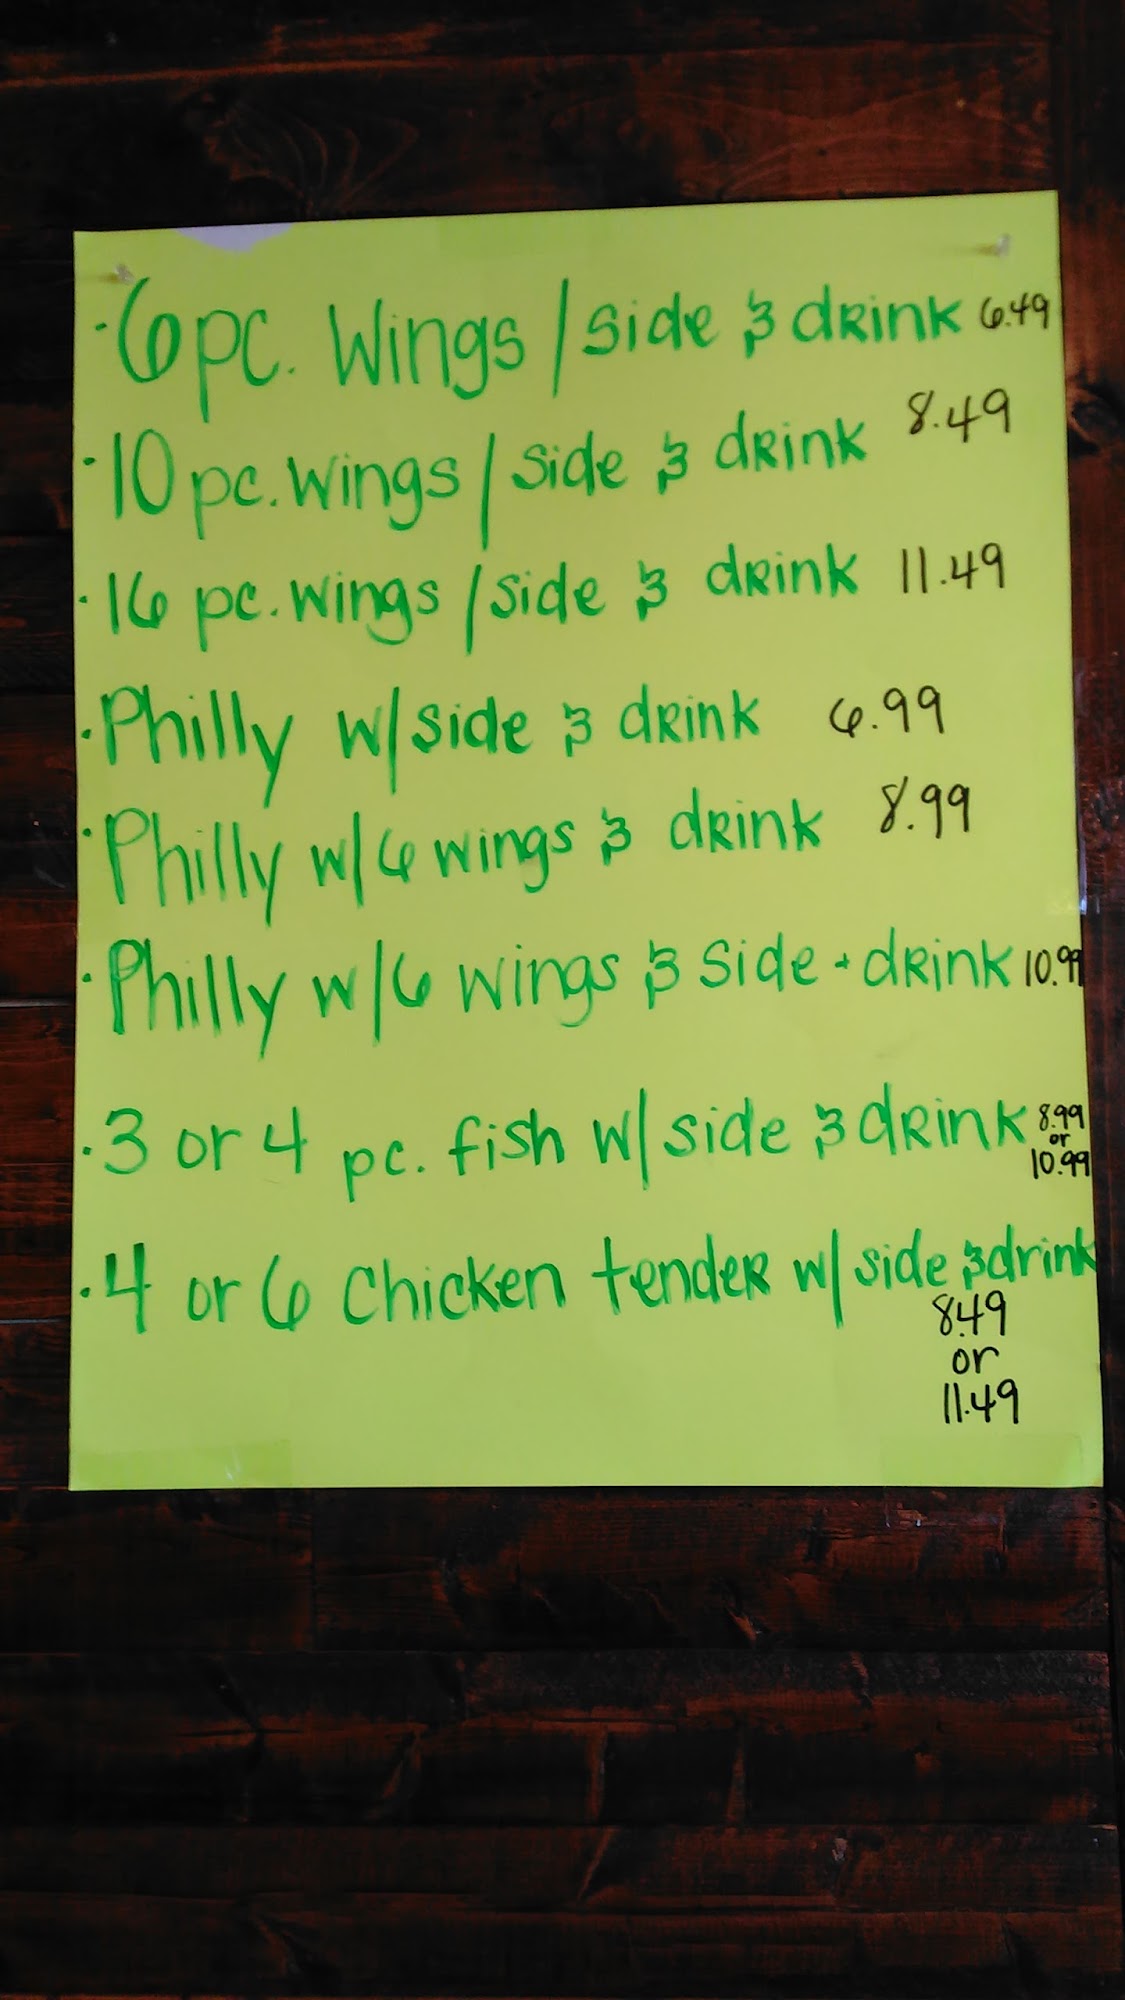 ·6 pc. Wings / side & drink 6.49
·10 pc. wings / side & drink 8.49
·16 pc. wings / side & drink 11.49
·Philly w/ side & drink 6.99
·Philly w/ 6 wings & drink 8.99
·Philly w/ 6 wings & side + drink 10.99
·3 or 4 pc. fish w/ side & drink 8.99
or
10.99
·4 or 6 Chicken tender w/ side & drink
8.49
or
11.49